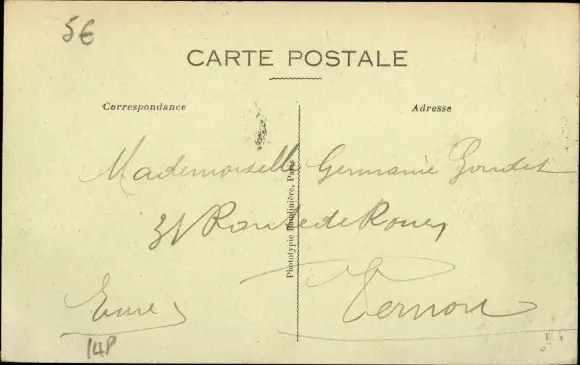 5€
CARTE POSTALE
Correspondance
Adresse
Mademoiselle Germanie Goudet
31 Route de Rouen
Vernon
Eure
148
Phototypie Baudinière, Paris